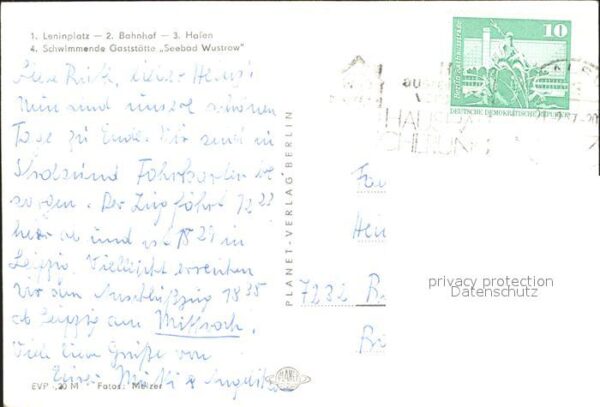 1. Leninplatz — 2. Bahnhof — 3. Hafen
4. Schwimmende Gaststätte „Seebad Wustrow"
Liebe Ruth, lieber Heinz!
Nun sind unsere schönen
Tage zu Ende. Wir sind in
Stralsund Fahrkarten be
sorgen. Der Zug fährt 12 23
hier ab und ist 18 29 in
Leipzig. Vielleicht erreichen
wir den Anschlußzug 18 35
ab Leipzig am Mittwoch.
Viele liebe Grüße von
Eurer Mutti u Angelika
EVP -,20 M Fotos: Melzer
PLANET-VERLAG BERLIN
PLANET
10
Berlin, Rathausstraße
DEUTSCHE DEMOKRATISCHE REPUBLIK
HAUS
Fa
Hei
7232 B
privacy protection
Datenschutz